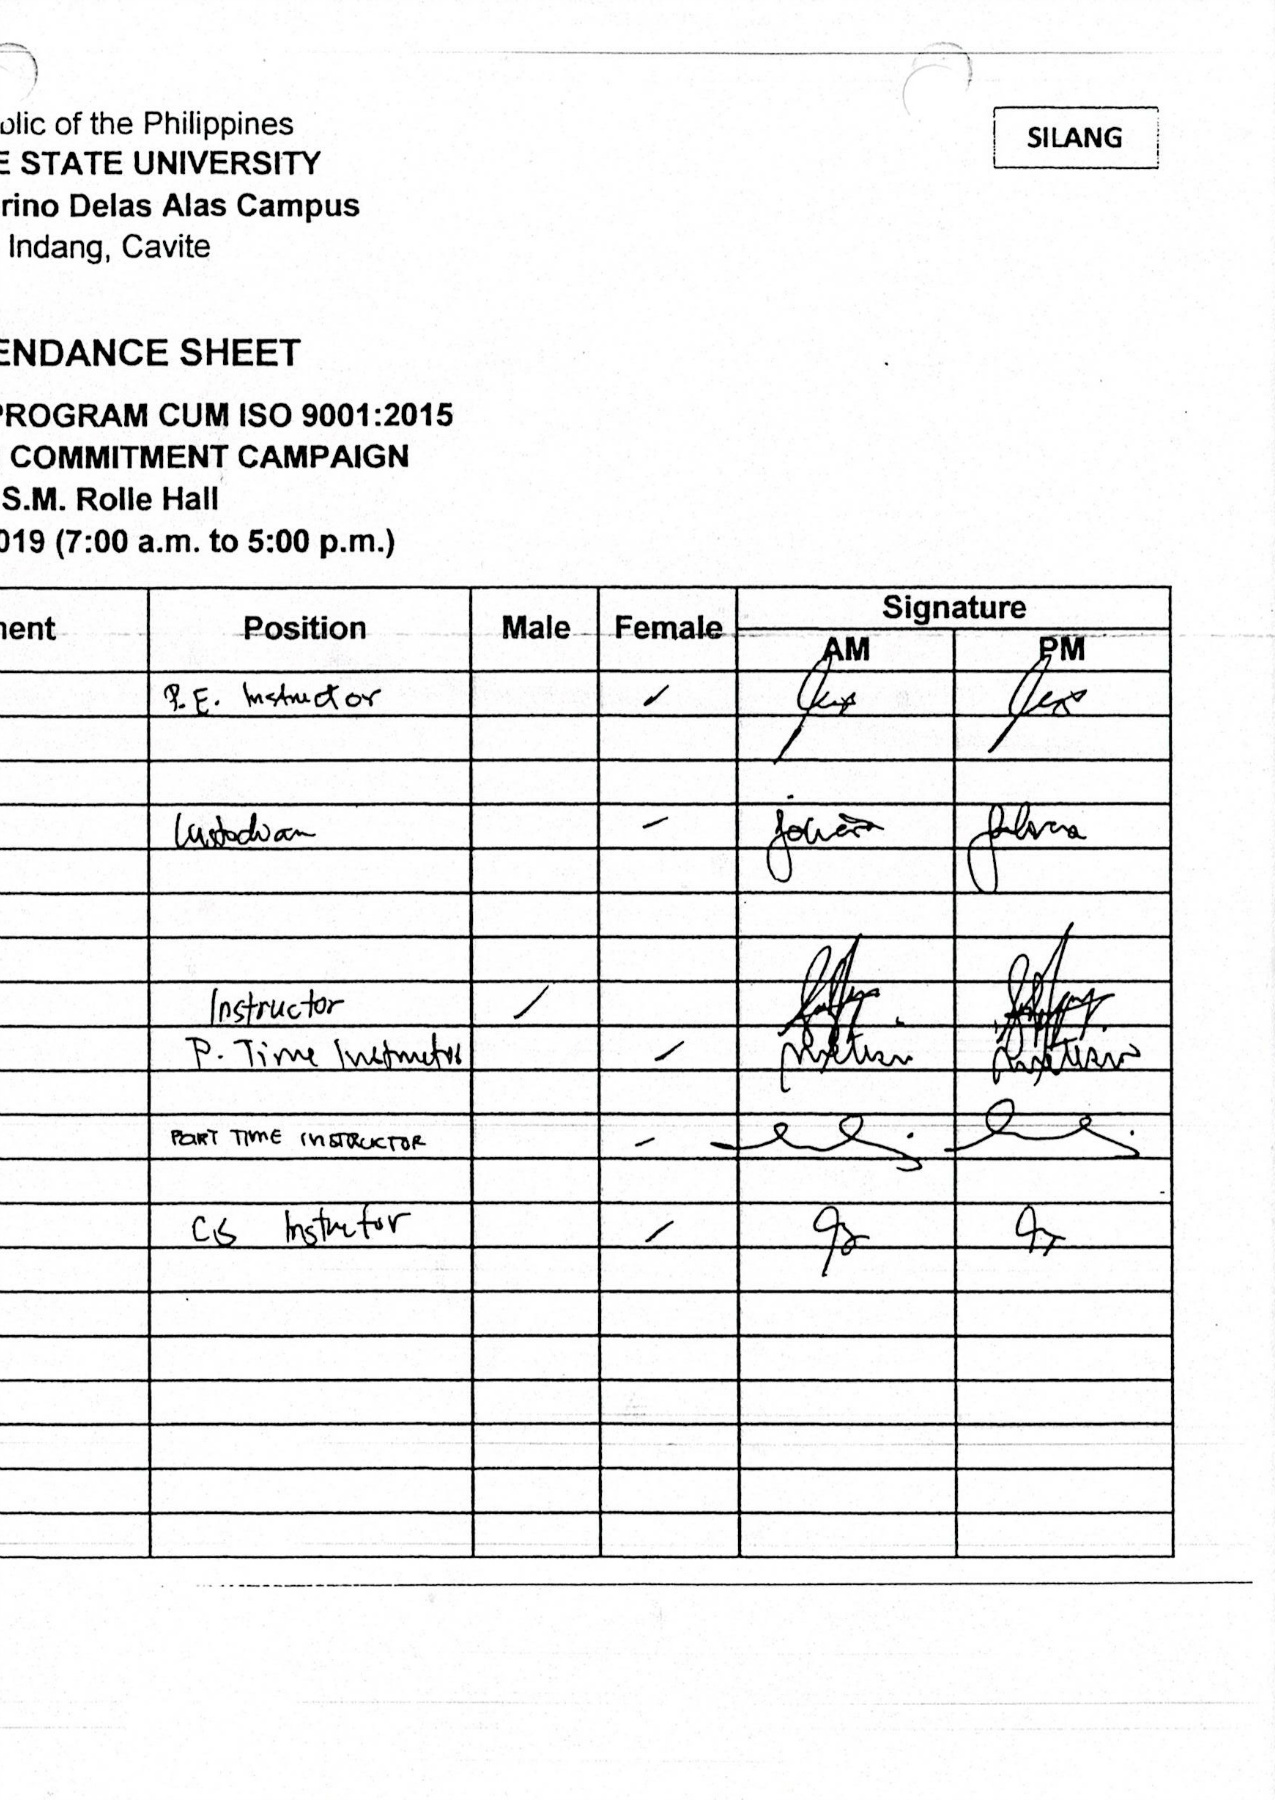 blic of the Philippines
SILANG
E STATE UNIVERSITY
rino Delas Alas Campus
Indang, Cavite
ENDANCE SHEET
PROGRAM CUM ISO 9001:2015
COMMITMENT CAMPAIGN
S.M. Rolle Hall
019 (7:00 a.m. to 5:00 p.m.)
nent Position Male Female Signature
AM PM
P.E. Instructor
Custodian
Instructor
P. Time Instructor
PART TIME INSTRUCTOR
Instructor